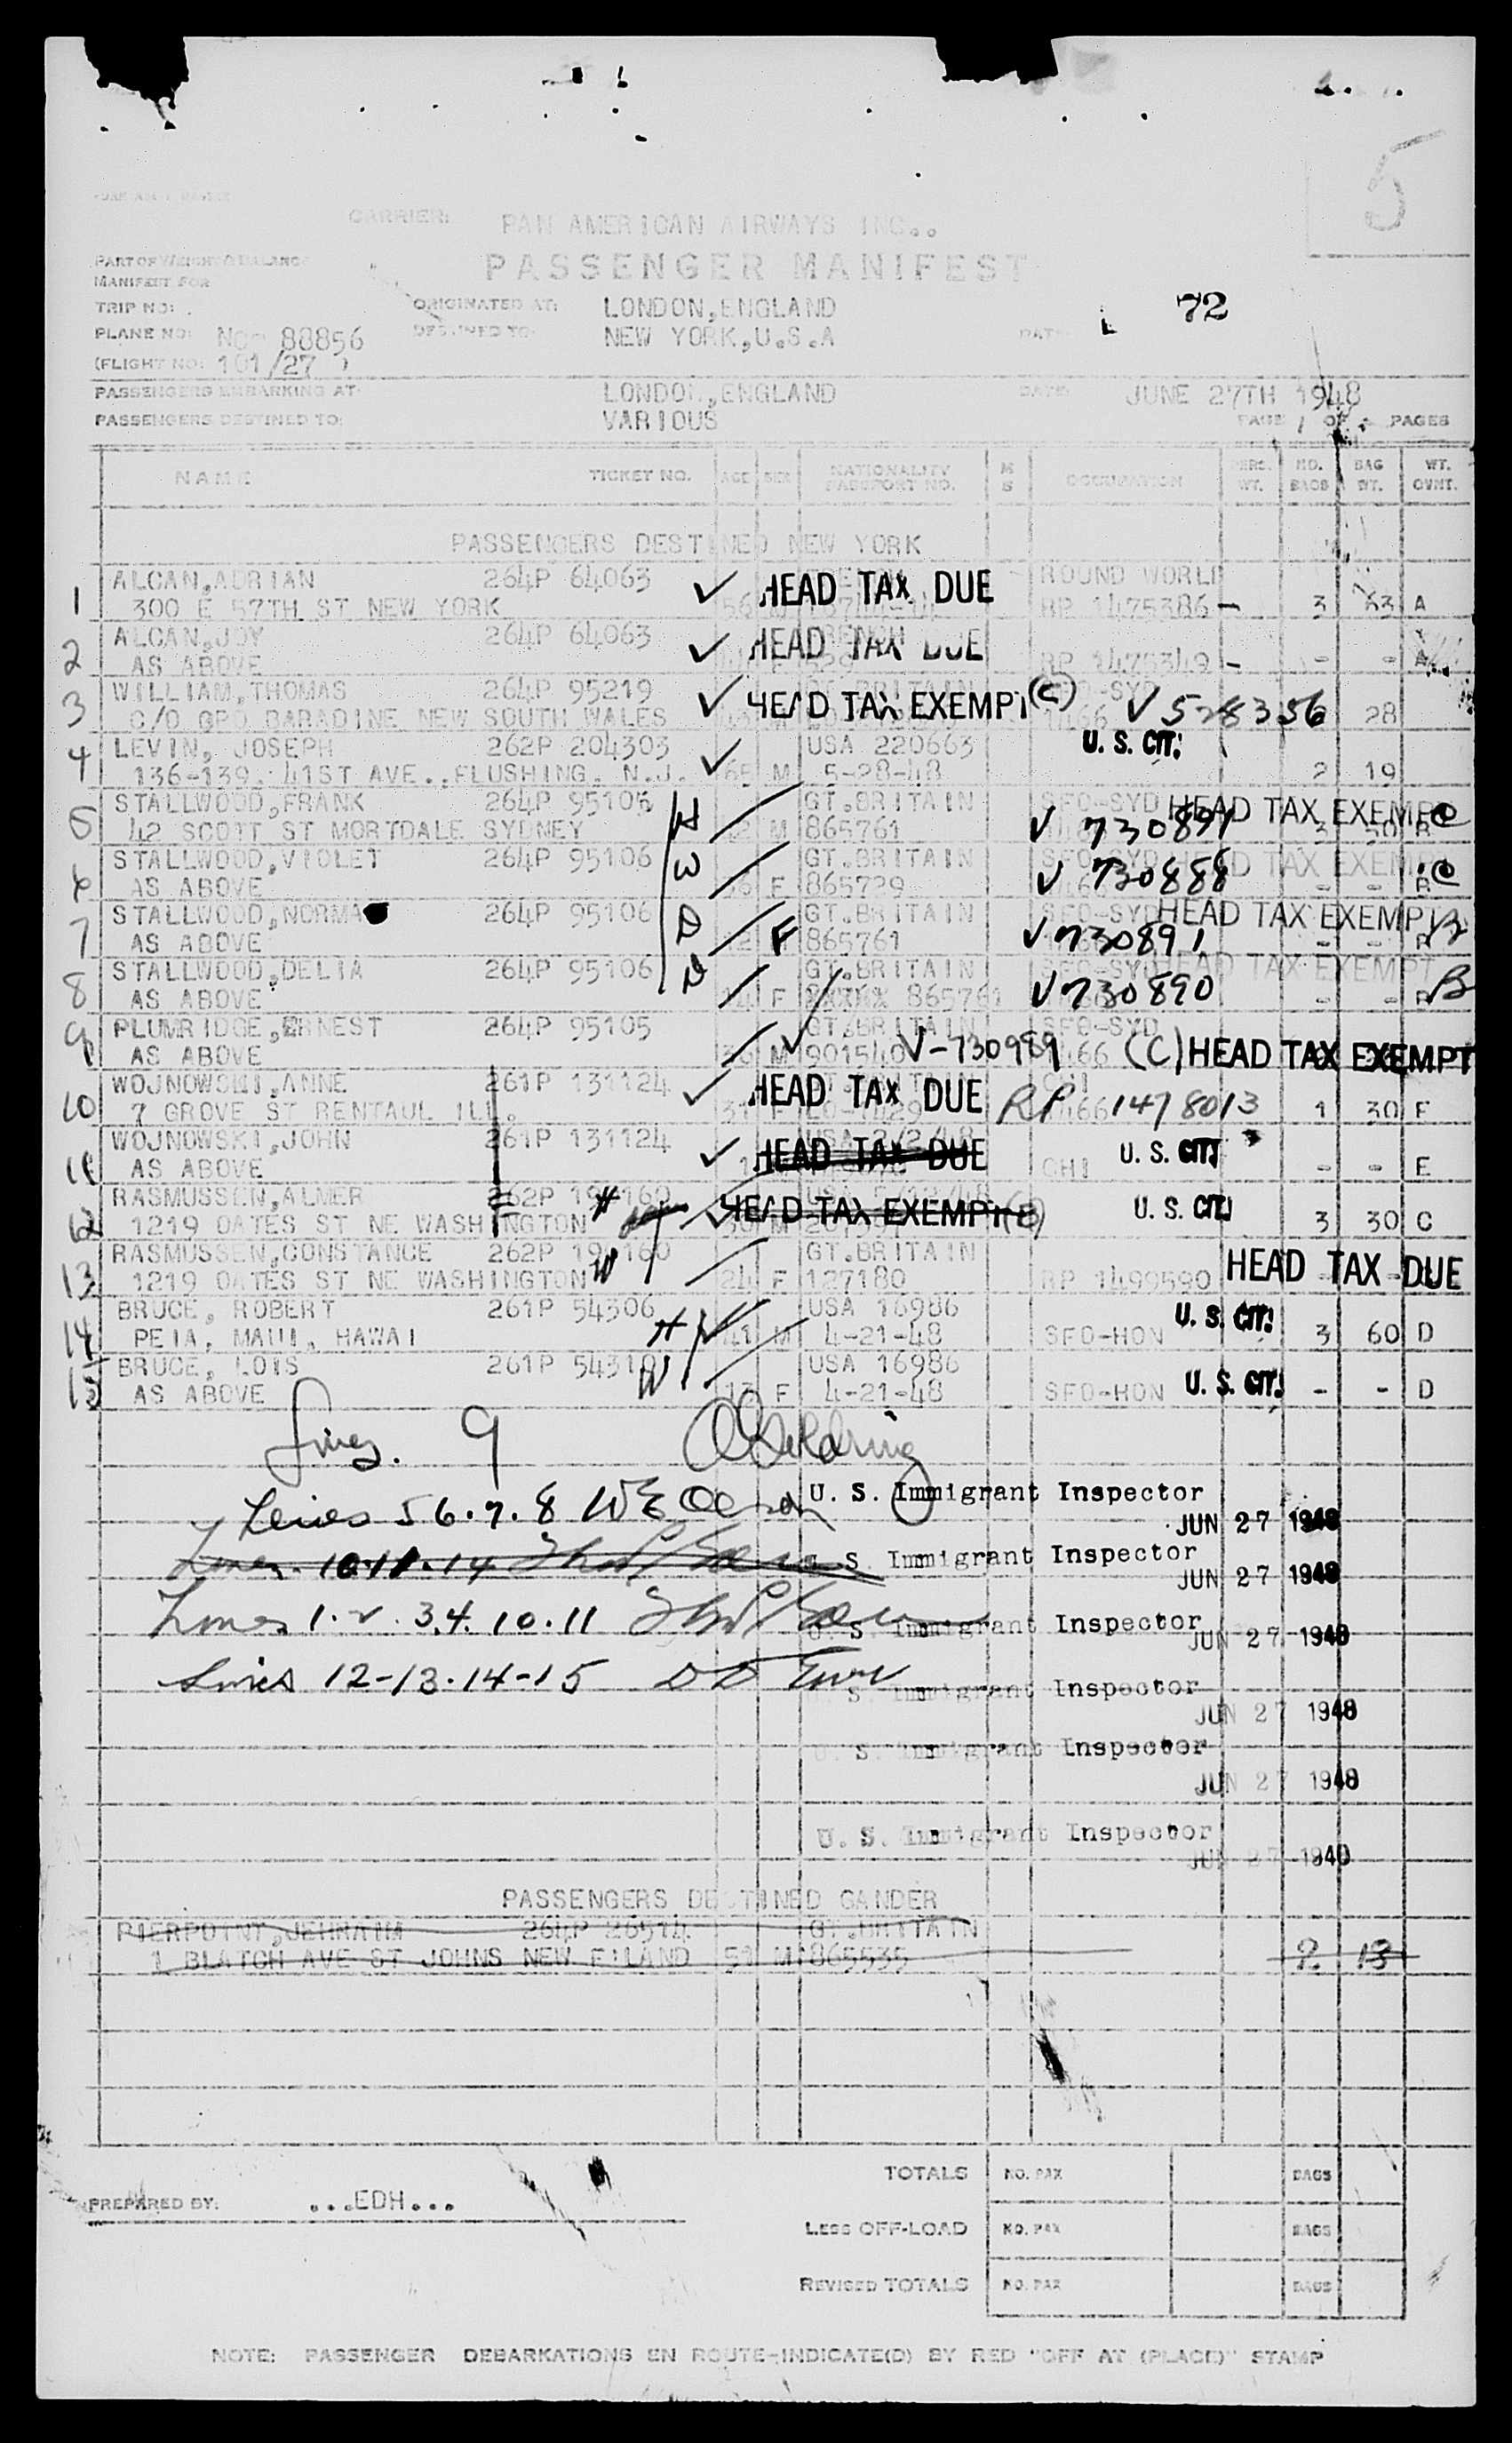 5
CARRIER: PAN AMERICAN AIRWAYS INC..
PASSENGER MANIFEST
PART OF WEIGHT & BALANCE
MANIFEST FOR
TRIP NO: ORIGINATED AT: LONDON,ENGLAND 72
PLANE NO: No- 88856 DESTINED TO: NEW YORK,U.S.A DATE
(FLIGHT NO: 101/27 )
PASSENGERS EMBARKING AT: LONDON,ENGLAND DATE: JUNE 27TH 1948
PASSENGERS DESTINED TO: VARIOUS PAGE 1 OF PAGES
NAME TICKET NO. AGE SEX NATIONALITY PASSPORT NO. M S OCCUPATION PERS. WT. NO. BAGS BAG WT. WT. OVHT.
PASSENGERS DESTINED NEW YORK
ALCAN,ADRIAN 264P 64063 ✓ HEAD TAX DUE ROUND WORLD
1 300 E 57TH ST NEW YORK 56 RP 1475386 - 3 63 A
ALCAN,JOY 264P 64063 ✓ HEAD TAX DUE
2 AS ABOVE RP 1475349 - - - A
WILLIAM,THOMAS 264P 95219 ✓ HEAD TAX EXEMPT (C) SFO-SYD
3 C/O GPO BARADINE NEW SOUTH WALES V 528356 28
LEVIN, JOSEPH 262P 204303 ✓ USA 220663 U. S. CIT.
4 136-139. 41ST AVE..FLUSHING. N.J. 65 M 5-28-48 2 19
STALLWOOD,FRANK 264P 95105 H GT.BRITAIN SFO-SYD HEAD TAX EXEMPT C
5 42 SCOTT ST MORTDALE SYDNEY 42 M 865761 V 730891 3 50 B
STALLWOOD,VIOLET 264P 95106 W GT.BRITAIN SFO-SYD HEAD TAX EXEMPT C
6 AS ABOVE 36 F 865729 V 730888 - - B
STALLWOOD,NORMA 264P 95106 D GT.BRITAIN SFO-SYD HEAD TAX EXEMPT B
7 AS ABOVE 12 F 865761 V 730891 - - B
STALLWOOD,DELIA 264P 95106 D GT.BRITAIN SFO-SYD HEAD TAX EXEMPT B
8 AS ABOVE 14 F XXXXX 865761 V 730890 - - B
PLUMRIDGE,ERNEST 264P 95105 GT.BRITAIN SFO-SYD
9 AS ABOVE 36 M 901540 V-730989 1466 (C) HEAD TAX EXEMPT
WOJNOWSKI,ANNE 261P 131124 ✓ HEAD TAX DUE CHI
10 7 GROVE ST RENTAUL ILL. 31 F RP 1478013 1 30 E
WOJNOWSKI,JOHN 261P 131124 ✓ HEAD TAX DUE U. S. CIT.
11 AS ABOVE CHI - - E
RASMUSSEN,ALMER 262P 191160 H HEAD TAX EXEMPT U. S. CIT.
12 1219 OATES ST NE WASHINGTON 30 M 3 30 C
RASMUSSEN,CONSTANCE 262P 191160 W GT.BRITAIN HEAD TAX DUE
13 1219 OATES ST NE WASHINGTON 24 F 127180 RP 1499590
BRUCE, ROBERT 261P 54306 H ✓ USA 16986 U. S. CIT.
14 PEIA, MAUI, HAWAI 41 M 4-21-48 SFO-HON 3 60 D
BRUCE, LOIS 261P 54310 W USA 16986
15 AS ABOVE 13 F 4-21-48 SFO-HON U. S. CIT. - - D
Lines. 9
U. S. Immigrant Inspector
Lines 5 6.7.8 JUN 27 1948
Lines. 10.11.14 U. S. Immigrant Inspector
JUN 27 1948
Lines 1.2.3.4.10.11 U. S. Immigrant Inspector
JUN 27 1948
Lines 12-13.14-15 U. S. Immigrant Inspector
JUN 27 1948
U. S. Immigrant Inspector
JUN 27 1948
U. S. Immigrant Inspector
JUN 27 1948
PASSENGERS DESTINED GANDER
PIERPOINT,JEHRAIM 264P 26514 GT.BRITAIN
1 BLATCH AVE ST JOHNS NEW F'LAND 51 M 865535 2 13
TOTALS NO. PAX BAGS
PREPARED BY: ...EDH...
LESS OFF-LOAD NO. PAX BAGS
REVISED TOTALS NO. PAX BAGS
NOTE: PASSENGER DEBARKATIONS EN ROUTE-INDICATE(D) BY RED "OFF AT (PLACE)" STAMP